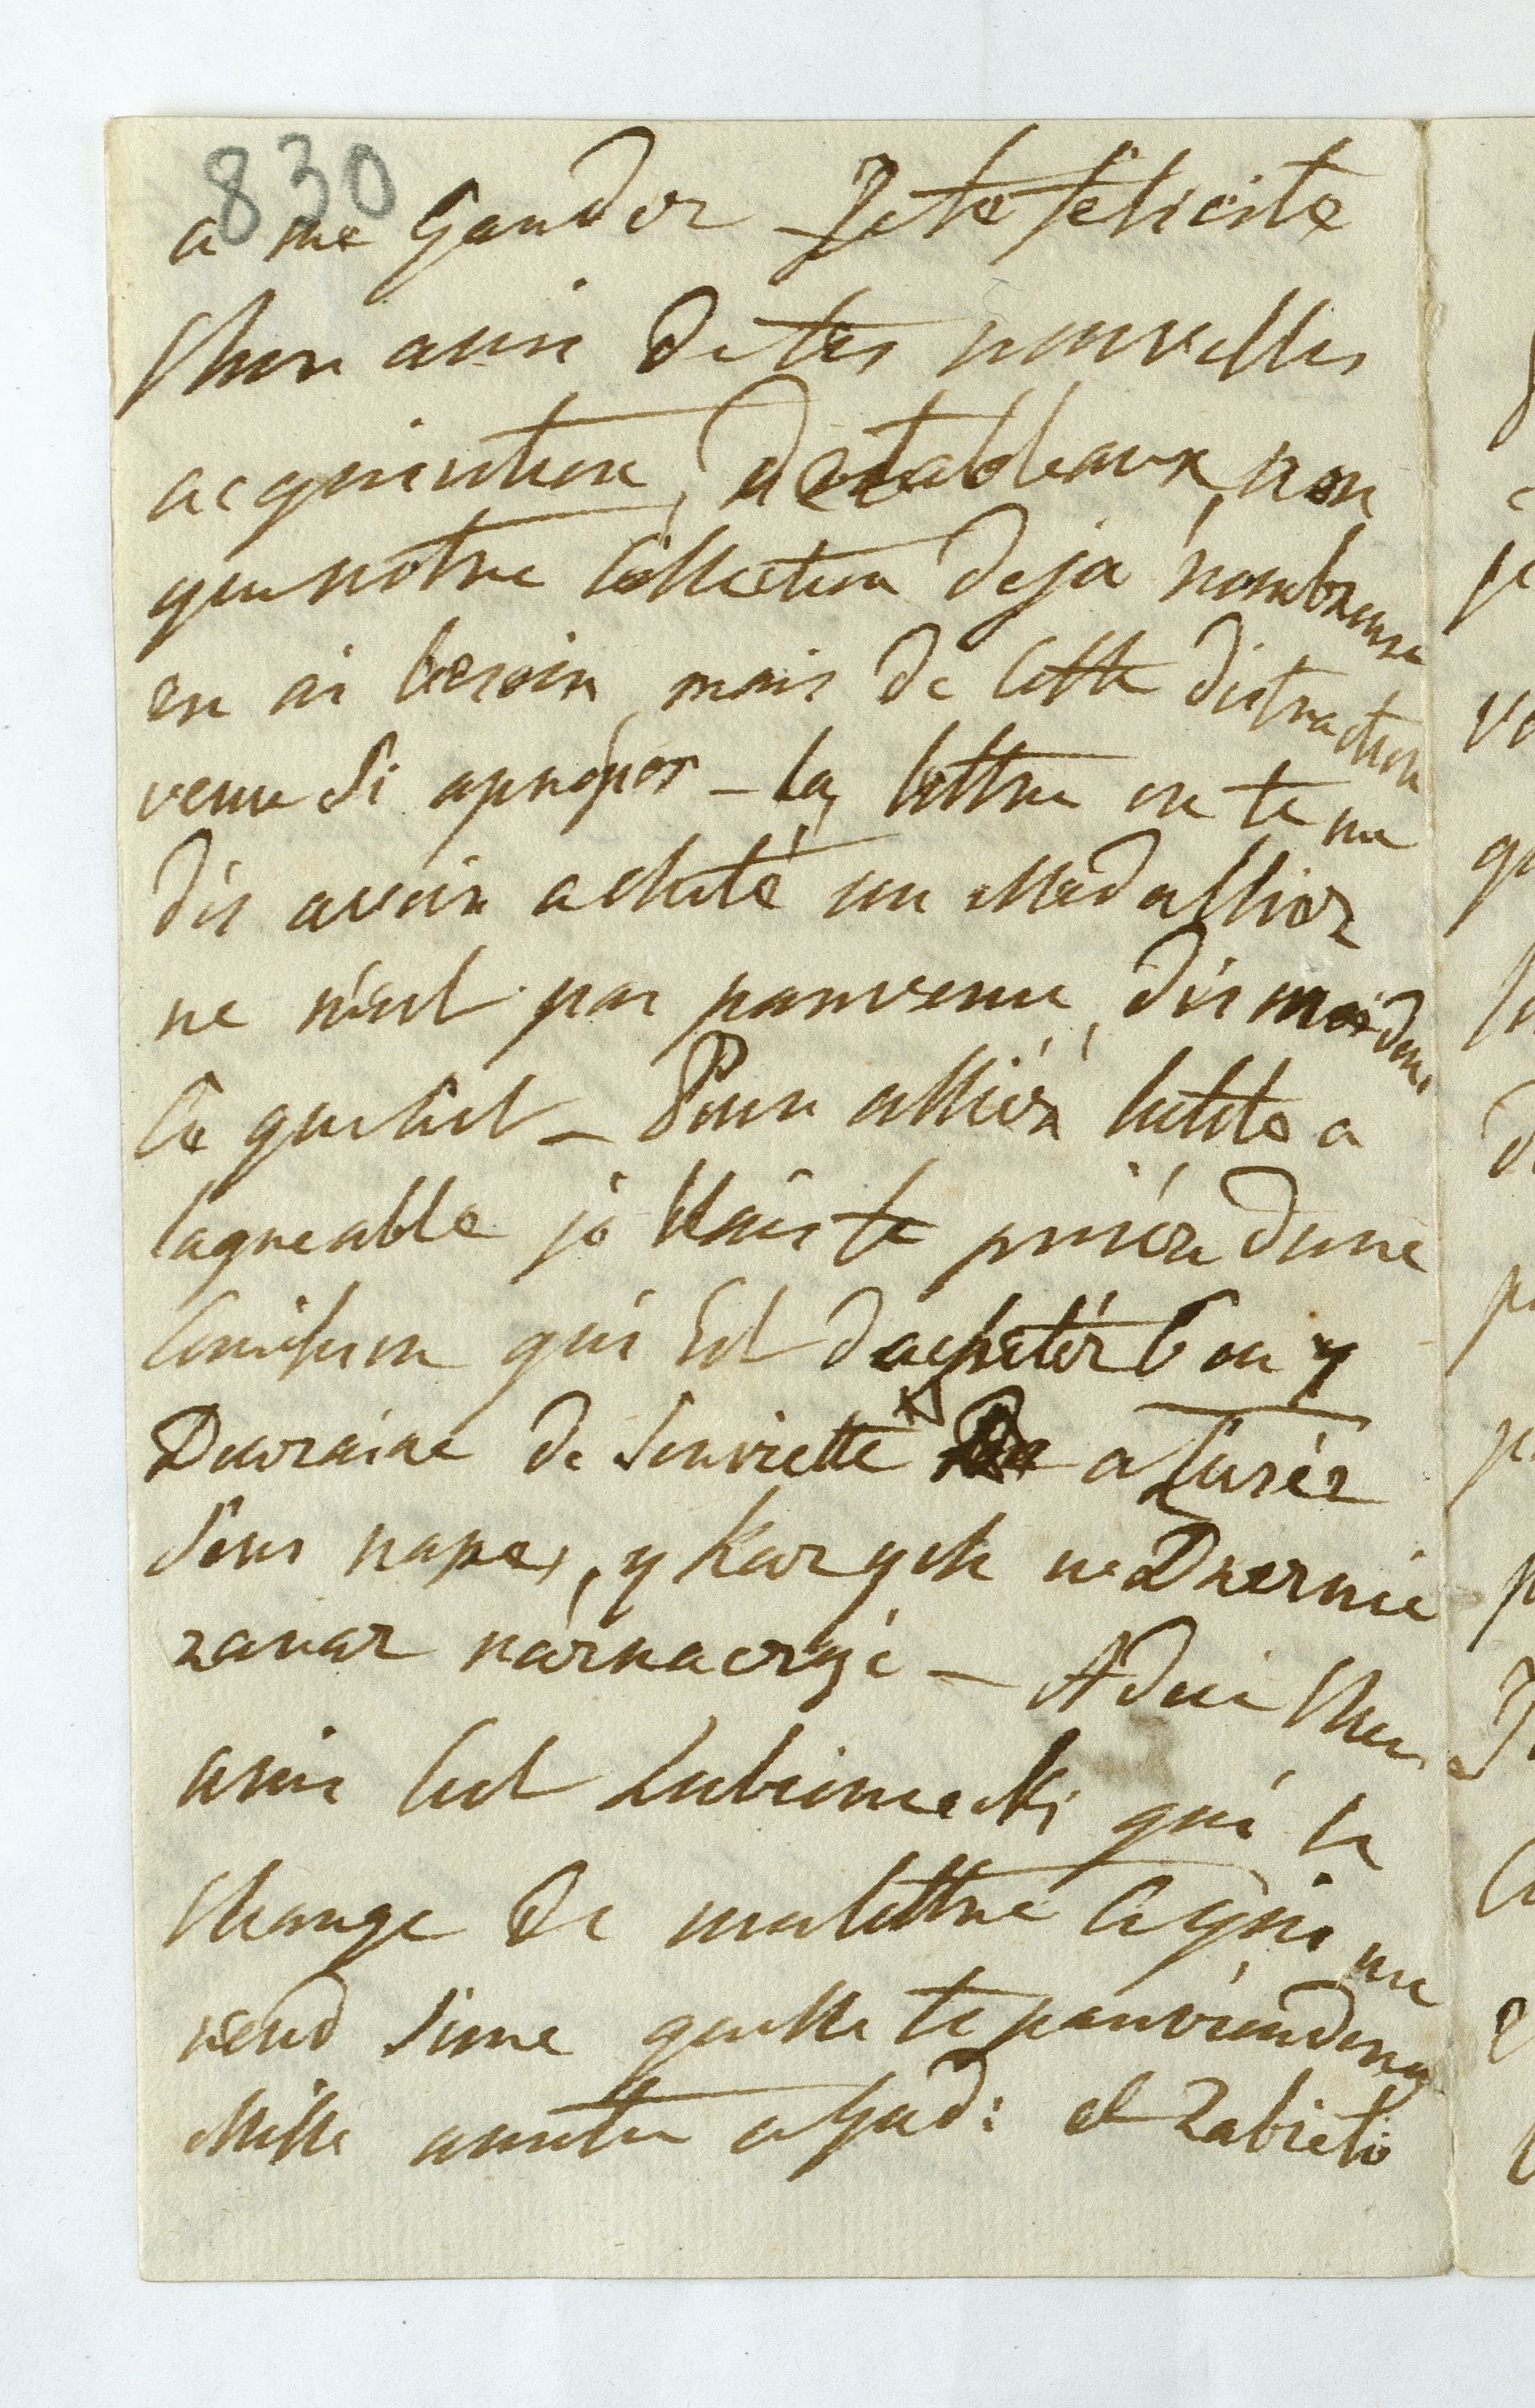 830
a me Gander Je te felicite
Cher ami de tes nouvelles
acquisition, de tableaux, non
que notre Collection deja nombreuse
en ai besoin, mais de cette distraction
venue si apropos – la lettre ou tu me
dis avoir acheté un Medallier
ne m'est pas parvenue, dis moi donc
Ce que c'est – Pour alliér lutile a
lagreable je Vais te priér dune
Comission qui Est dachetér 6 ou 7
Douzaine de Serviette a
sous napes, y
– Adieu Cher
ami C'est Lubiniecki qui se
Charge de ma lettre Ce qui me
rend sure quelle te parviendera
Mille amitie a et Zabiela